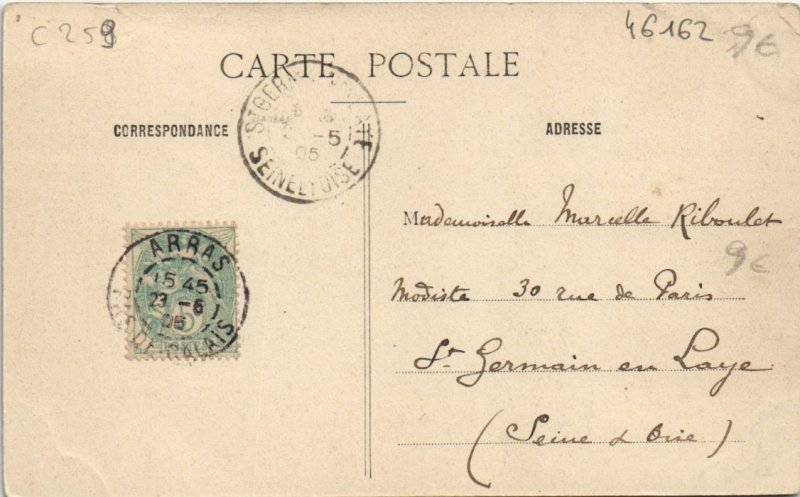 C 259
46162
9€
CARTE POSTALE
CORRESPONDANCE
ADRESSE
ST GERMAIN
-5
05
SEINE ET OISE
ARRAS
15 45
23 -5
05
PAS DE CALAIS
5
Mademoiselle Marcelle Riboulet
9€
Modiste 30 rue de Paris
St Germain en Laye
(Seine & Oise)